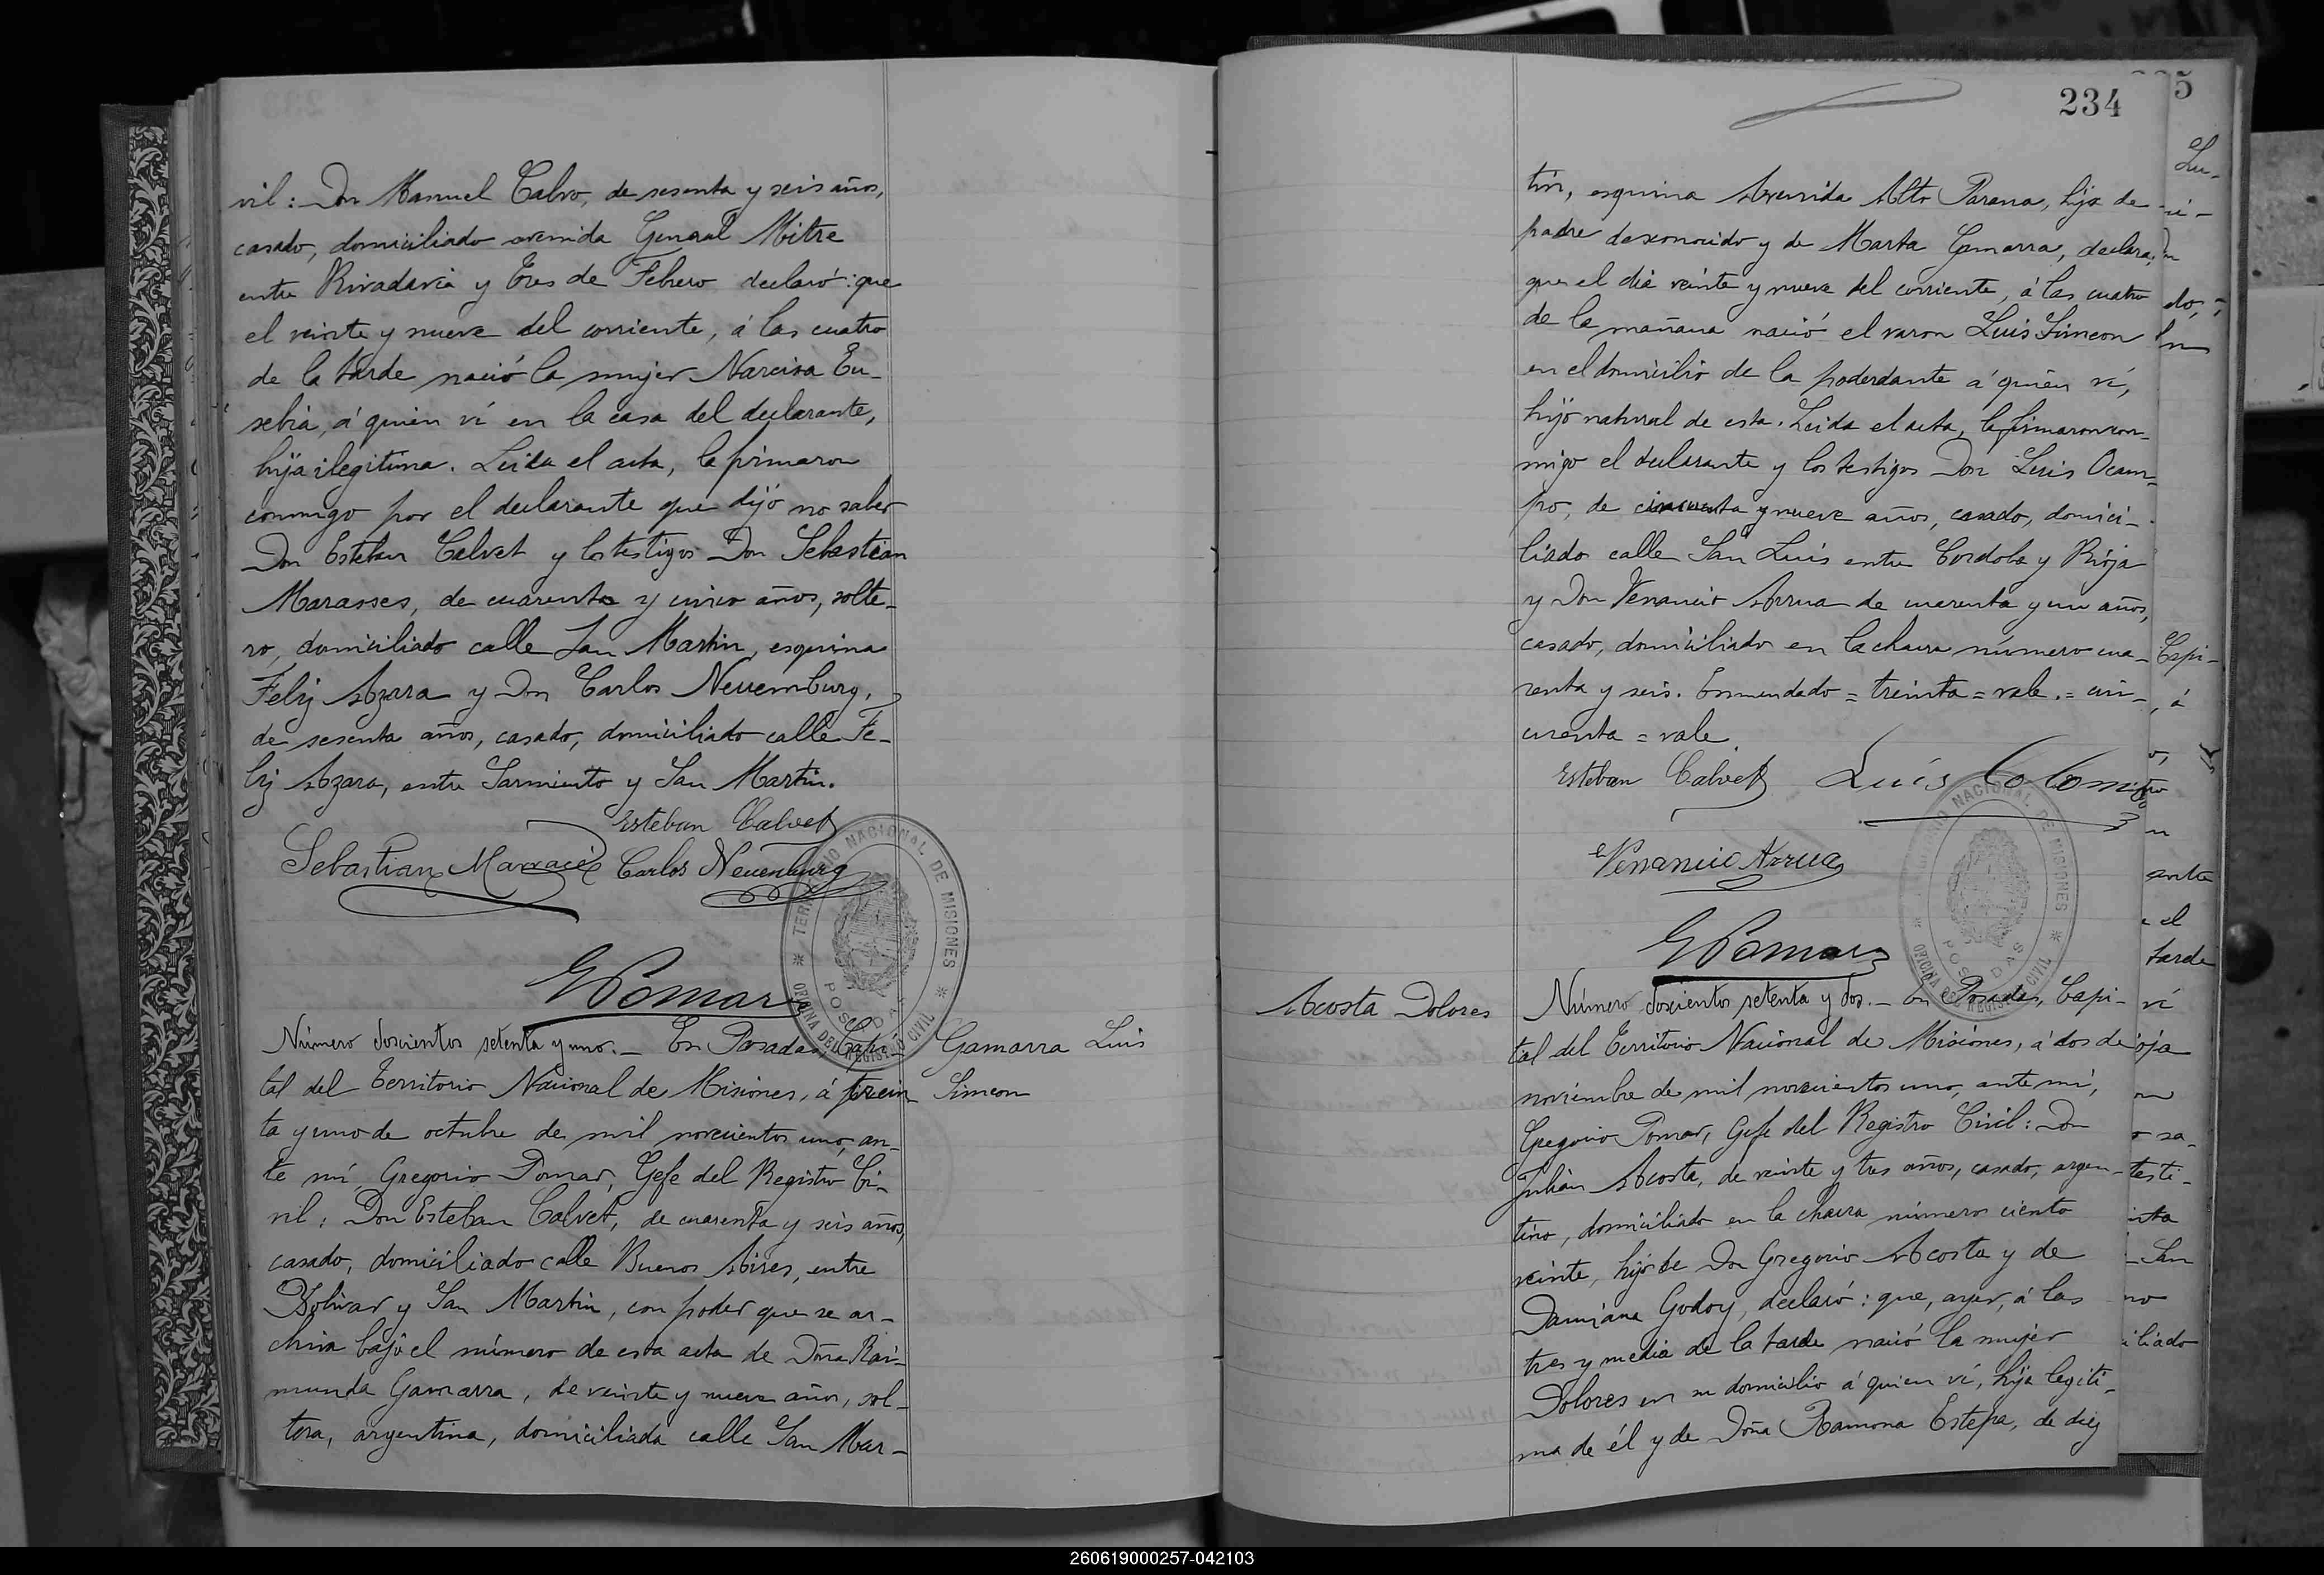 vil: Don Manuel Calvo, de sesenta y seis años,
casado, domiciliado avenida General Mitre
entre Rivadavia y Tres de Febrero declaró: que
el veinte y nueve del corriente, á las cuatro
de la tarde nació la mujer Narcisa Eu-
sebia, á quien ví en la casa del declarante,
hija ilegitima. Leida el acta, la firmaron
conmigo por el declarante que dijo no saber
Don Esteban Calvet y los testigos Don Sebastian
Marasses, de cuarenta y cinco años, solte-
ro, domiciliado calle San Martin, esquina
Felix Azara y Don Carlos Neuemburg,
de sesenta años, casado, domiciliado calle Fe-
lix Azara, entre Sarmiento y San Martin.
Esteban Calvet
Sebastian Carlos Neuenburg
GPomar
TERRITORIO NACIONAL DE MISIONES
OFICINA DEL REGISTRO CIVIL
POSADAS
Número doscientos setenta y uno.— En Posadas, Capi-
tal del Territorio Nacional de Misiones, á trein-
ta y uno de octubre de mil novecientos uno, an-
te mí, Gregorio Pomar, Gefe del Registro Ci-
vil: Don Esteban Calvet, de cuarenta y seis años,
casado, domiciliado calle Buenos Aires, entre
Bolivar y San Martin, con poder que se ar-
chiva bajo el número de esta acta de Doña Rai-
munda Gamarra, de veinte y nueve años, sol-
tera, argentina, domiciliada calle San Mar-
Gamarra Luis
Simeon
234
tin, esquina Avenida Alto Parana, hija de
padre desconocido y de Marta Gamarra, declara:
que el dia veinte y nueve del corriente, á las cuatro
de la mañana nació el varon Luis Simeon
en el domicilio de la poderdante á quién ví,
hijo natural de esta. Leida el acta, la firmaron con-
migo el declarante y los testigos Don Luis Ocam-
po, de cincuenta y nueve años, casado, domici-
liado calle San Luis entre Cordoba y Rioja
y Don Venancio Arrua de cuarenta y un años,
casado, domiciliado en la chacra número cua-
renta y seis. Enmendado = treinta = vale. = cin-
cuenta = vale
Esteban Calvet Luis
Venancio Arrua
GPomar
TERRITORIO NACIONAL DE MISIONES
OFICINA DEL REGISTRO CIVIL
POSADAS
Acosta Dolores
Número doscientos setenta y dos.— En Posadas, Capi-
tal del Territorio Nacional de Misiones, á dos de
noviembre de mil novecientos uno, ante mí,
Gregorio Pomar, Gefe del Registro Civil: Don
Julián Acosta, de veinte y tres años, casado, argen-
tino, domiciliado en la chacra número ciento
veinte, hijo de Don Gregorio Acosta y de
Damiana Godoy, declaró: que, ayer, á las
tres y media de la tarde nació la mujer
Dolores en su domicilio á quien ví, hija legiti-
ma de él y de Doña Ramona Estepa, de diez
5
Lu-
do,
Capi-
, á
ante
el
tarde
ví
oja
o sa-
testi-
San
no
iliado
260619000257-042103